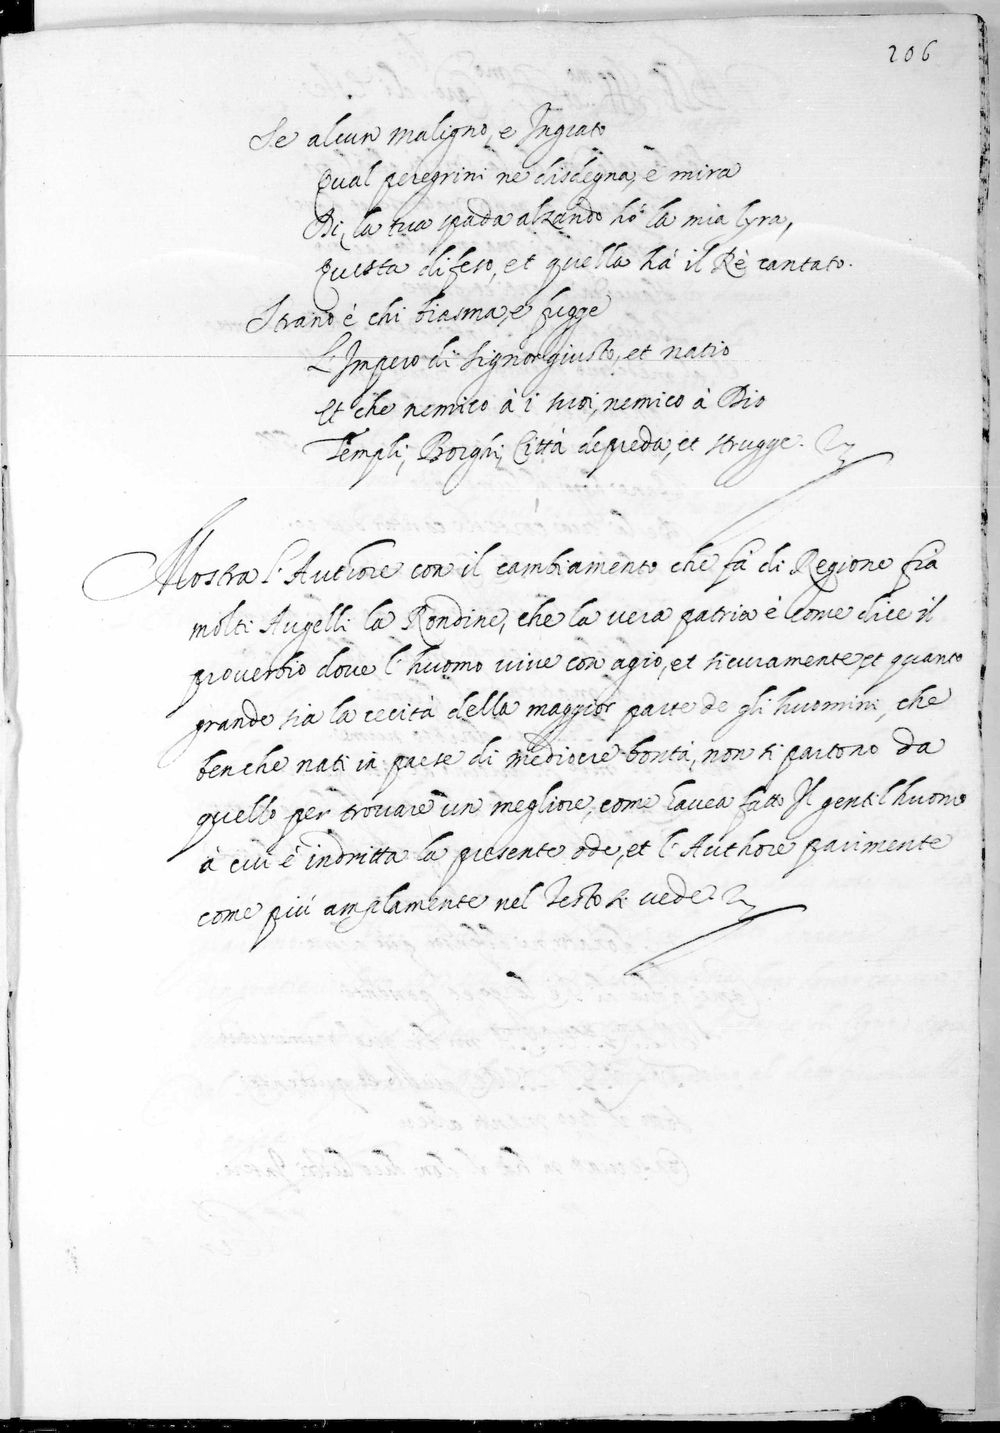 206
Se alcun maligno, e Ingrato
Qual peregrini ne disdegna, e mira
Di, la tua spada alzando hò la mia lyra,
Questa difeso, et quella hà il Rè cantato.
Strano è chi biasma, e fugge
L'Impero di Signor giusto, et natio
Et che nemico à i suoi, nemico à Dio
Templi, Borghi, Città depreda, et strugge.
Mostra l'Authore con il cambiamento che fà di Regione frà
molti Augelli la Rondine, che la vera patria è come dice il
proverbio dove l'huomo vive con agio, et sicuramente, et quanto
grande sia la cecità della maggior parte de gli huomini, che
benche nati in paese di mediocre bontà, non si partono da
quello per trovare un megliore, come havea fatto Il gentilhuomo
à cui è indritta la presente ode, et l'Authore parimente
come più amplamente nel Testo si vede.